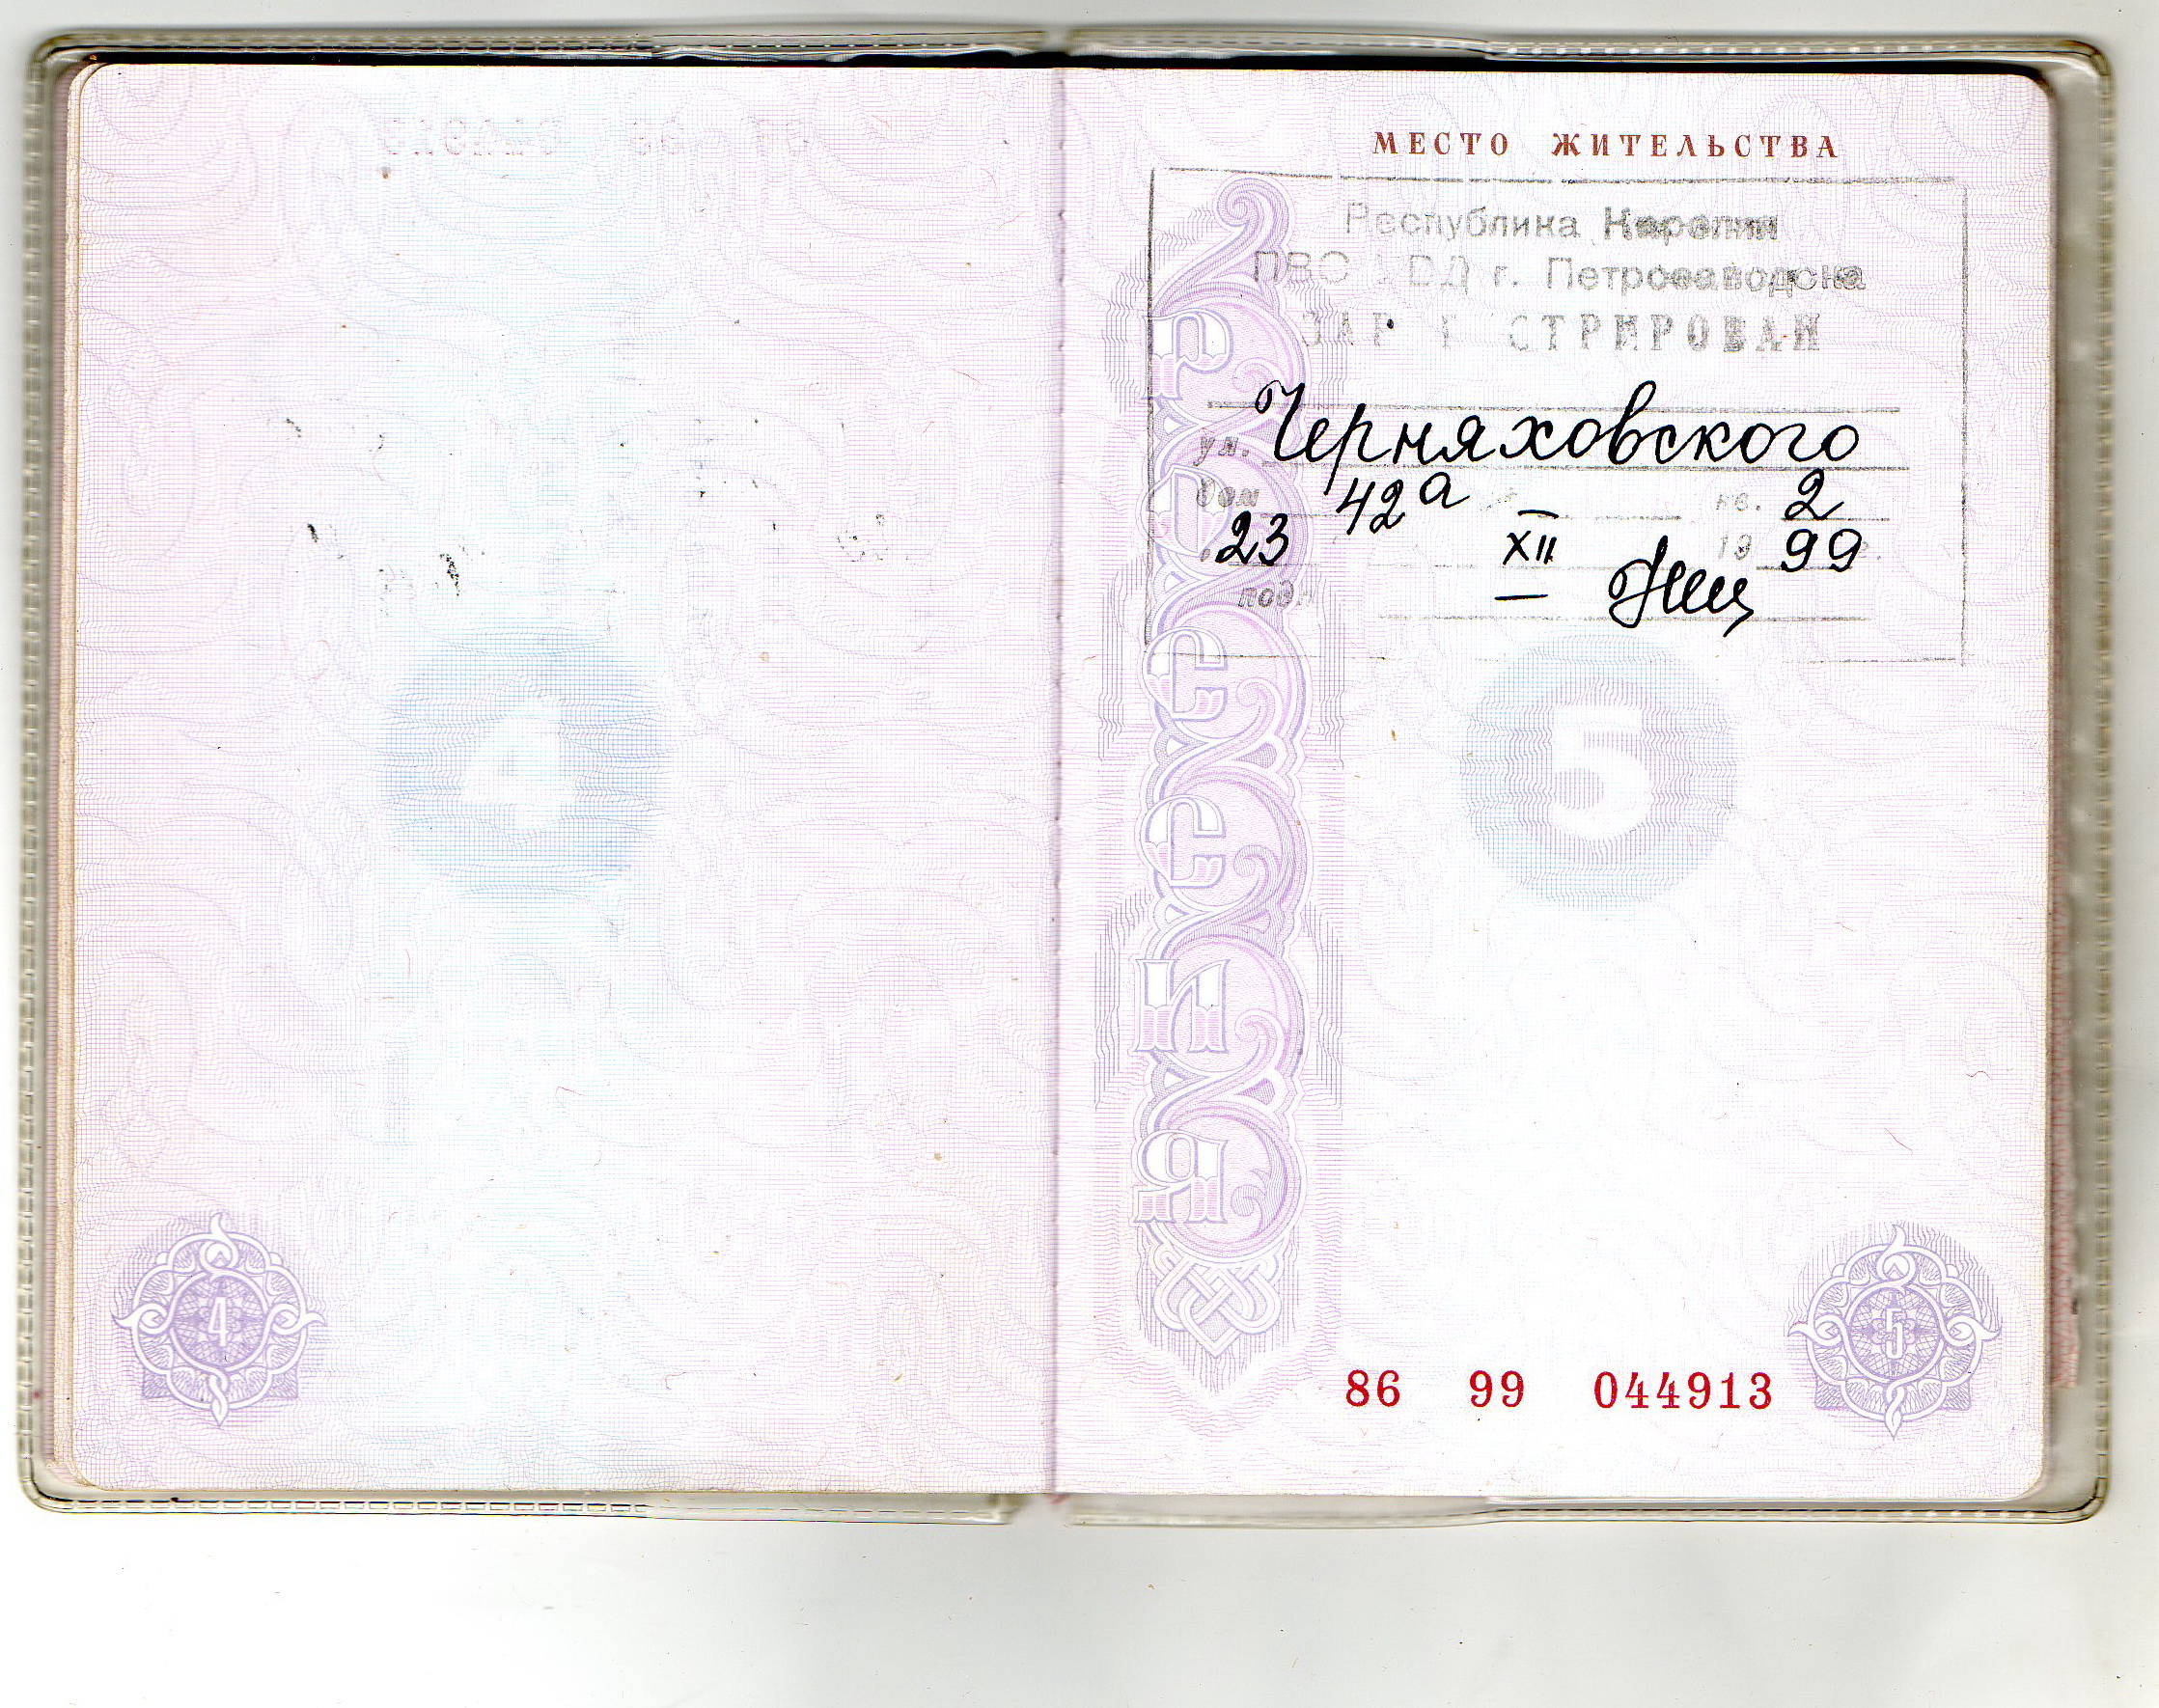 МЕСТО ЖИТЕЛЬСТВА
Республика Карелия
ПВС УВД г. Петрозаводска
ЗАРЕГИСТРИРОВАН
ул. Черняховского
дом 42а кв. 2
23 XII 1999 г.
подп
РОССИЯ
4
5
4
5
86 99 044913